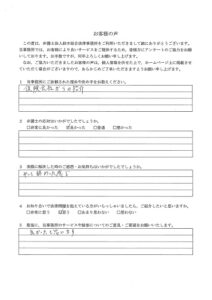 お客様の声
この度は、弁護士法人鈴木総合法律事務所をご利用いただきまして誠にありがとうございます。
当事務所では、お客様により良いサービスをご提供するため、皆様方にアンケートのご協力をお願い
しております。お手数ですが、何卒ご協力くださいますようお願い申し上げます。
なお、ご協力いただきましたお客様の声は、個人情報を伏せた上で、ホームページ上に掲載させて
いただく場合がございますので、あらかじめご了承いただきますようお願い申し上げます。
1 当事務所にご依頼された理由や決め手をお教えください。
保険会社からの紹介
2 弁護士の応対はいかがでしたでしょうか。
□非常に良かった ☑良かった □普通 □悪かった
3 実際に解決した時のご感想・お気持ちはいかがでしょうか。
やっと終わった感じ
4 お知り合いで法律問題を抱えている方がいらっしゃいましたら、ご紹介したいと思いますか。
□非常に思う ☑思う □あまり思わない □思わない
5 最後に、当事務所のサービスや接客についてのご意見・ご要望をお願いいたします。
良かったと思います